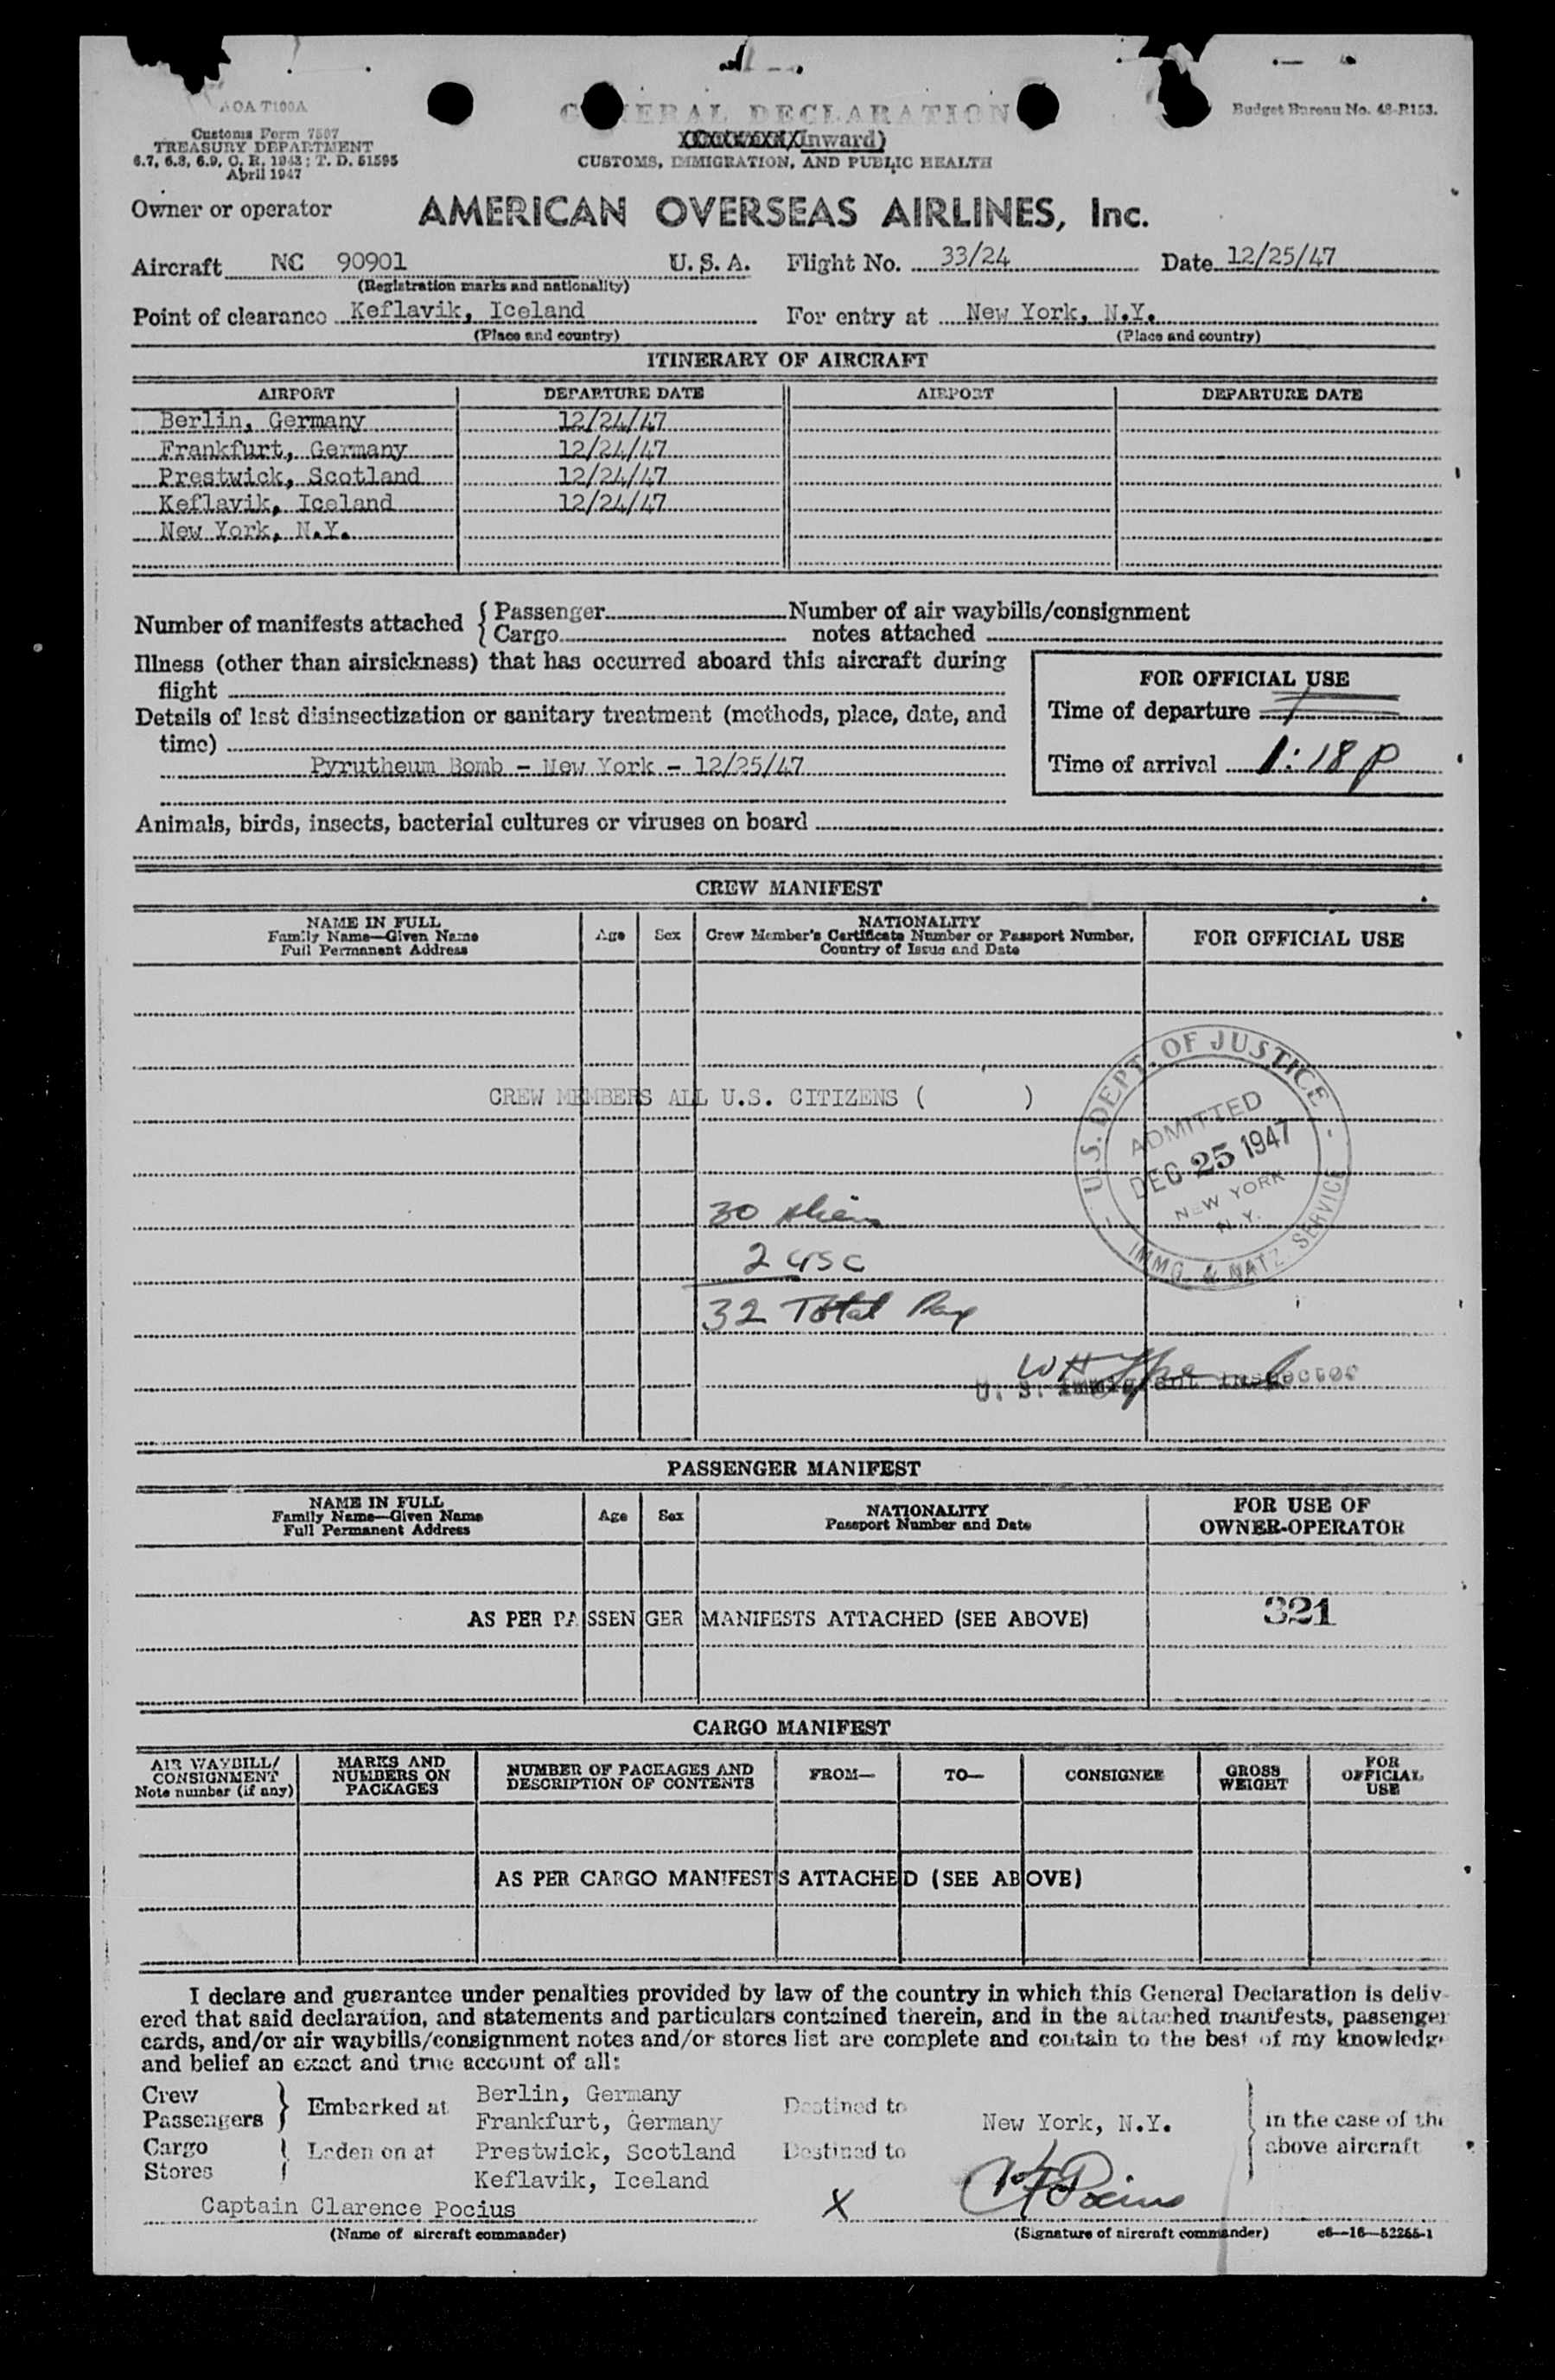 AOA T100A
Customs Form 7507
TREASURY DEPARTMENT
6.7, 6.8, 6.9, C. R. 1943; T. D. 51595
April 1947
GENERAL DECLARATION
Inward)
CUSTOMS, IMMIGRATION, AND PUBLIC HEALTH
Budget Bureau No. 48-R153.
Owner or operator AMERICAN OVERSEAS AIRLINES, Inc.
Aircraft NC 90901 U. S. A. Flight No. 33/24 Date 12/25/47
(Registration marks and nationality)
Point of clearance Keflavik, Iceland For entry at New York, N.Y.
(Place and country) (Place and country)
ITINERARY OF AIRCRAFT
AIRPORT DEPARTURE DATE AIRPORT DEPARTURE DATE
Berlin, Germany 12/24/47
Frankfurt, Germany 12/24/47
Prestwick, Scotland 12/24/47
Keflavik, Iceland 12/24/47
New York, N.Y.
Number of manifests attached { Passenger Number of air waybills/consignment
Cargo notes attached
Illness (other than airsickness) that has occurred aboard this aircraft during
flight
Details of last disinsectization or sanitary treatment (methods, place, date, and
time)
Pyrutheum Bomb - New York - 12/25/47
FOR OFFICIAL USE
Time of departure
Time of arrival 1:18 p
Animals, birds, insects, bacterial cultures or viruses on board
CREW MANIFEST
NAME IN FULL
Family Name—Given Name
Full Permanent Address
Age
Sex
NATIONALITY
Crew Member's Certificate Number or Passport Number,
Country of Issue and Date
FOR OFFICIAL USE
CREW MEMBERS ALL U.S. CITIZENS ( )
U.S. DEPT. OF JUSTICE
ADMITTED
DEC 25 1947
NEW YORK
N.Y.
IMMG. & NATZ. SERVICE
30 Aliens
2 USC
32 Total Pax
U. S. Immigrant Inspector
PASSENGER MANIFEST
NAME IN FULL
Family Name—Given Name
Full Permanent Address
Age
Sex
NATIONALITY
Passport Number and Date
FOR USE OF
OWNER-OPERATOR
AS PER PASSENGER MANIFESTS ATTACHED (SEE ABOVE)
321
CARGO MANIFEST
AIR WAYBILL/
CONSIGNMENT
Note number (if any)
MARKS AND
NUMBERS ON
PACKAGES
NUMBER OF PACKAGES AND
DESCRIPTION OF CONTENTS
FROM—
TO—
CONSIGNEE
GROSS
WEIGHT
FOR
OFFICIAL
USE
AS PER CARGO MANIFESTS ATTACHED (SEE ABOVE)
I declare and guarantee under penalties provided by law of the country in which this General Declaration is deliv-
ered that said declaration, and statements and particulars contained therein, and in the attached manifests, passenger
cards, and/or air waybills/consignment notes and/or stores list are complete and contain to the best of my knowledge
and belief an exact and true account of all:
Crew
Passengers } Embarked at
Cargo
Stores } Laden on at
Berlin, Germany
Frankfurt, Germany
Prestwick, Scotland
Keflavik, Iceland
Destined to
Destined to
New York, N.Y.
in the case of the
above aircraft
Captain Clarence Pocius X
(Name of aircraft commander) (Signature of aircraft commander) c6—16—52255-1